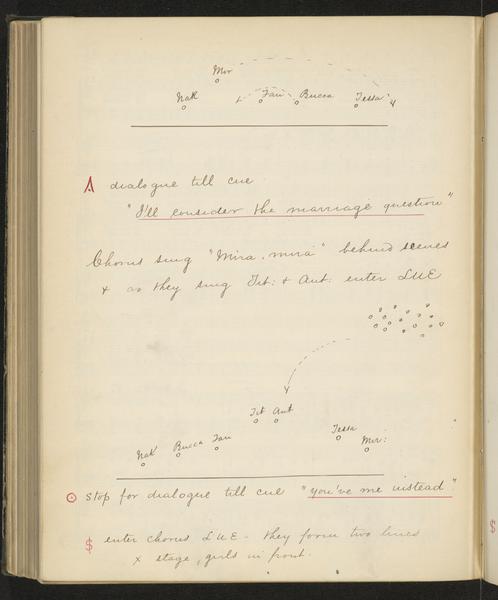 Mor
Nak Fau Bucca Tessa
A dialogue till cue
"I'll consider the marriage question"
Chorus sing "Mira, mira" behind scenes
+ as they sing Tit: + Aut: enter LUE
Tit Aut
Nak Bucca Fau Tessa Mor:
⊙ stop for dialogue till cue "you've me instead"
$ enter chorus LUE - they form two lines
x stage, girls in front.
$